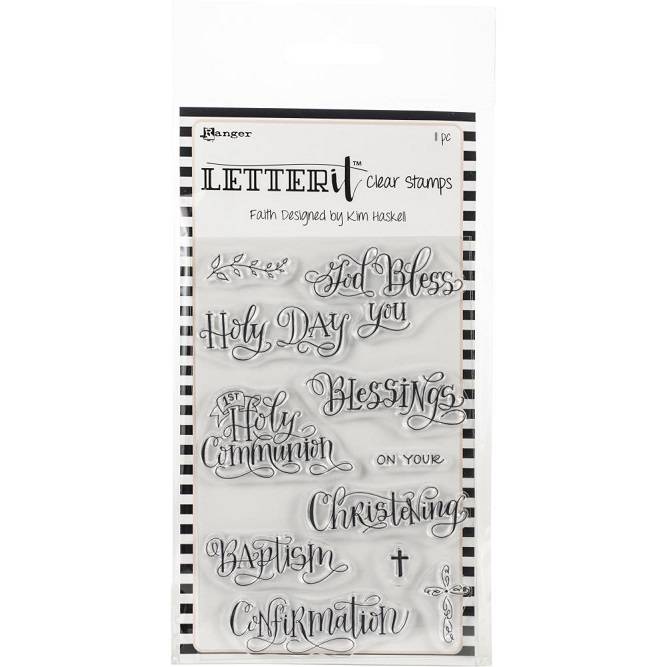 Ranger
11 pc
LETTERit™ Clear Stamps
Faith Designed by Kim Haskell
God Bless
you
Holy DAY
Blessings
1ST
Holy
Communion
ON YOUR
Christening
Baptism
Confirmation